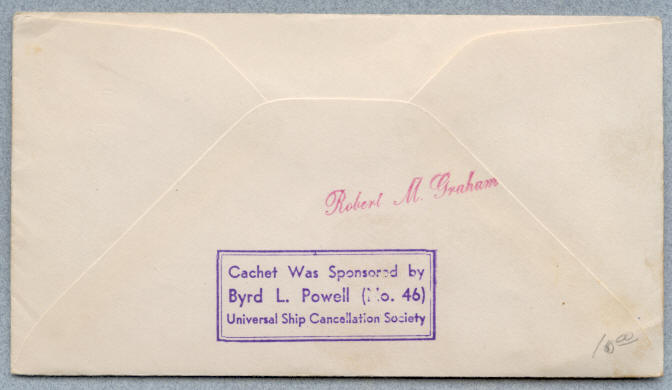 Robert M. Graham
Cachet Was Sponsored by
Byrd L. Powell (No. 46)
Universal Ship Cancellation Society